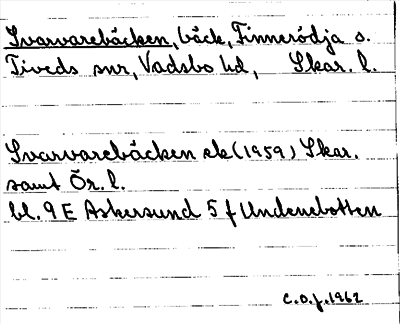 Svarvarebäcken, bäck, Finnerödja o.
Tiveds snr, Vadsbo hd, Skar. l.
Svarvarebäcken ek (1959) Skar.
samt Ör. l.
bl. 9 E Askersund 5 f Undenebotten
C.O.f. 1962